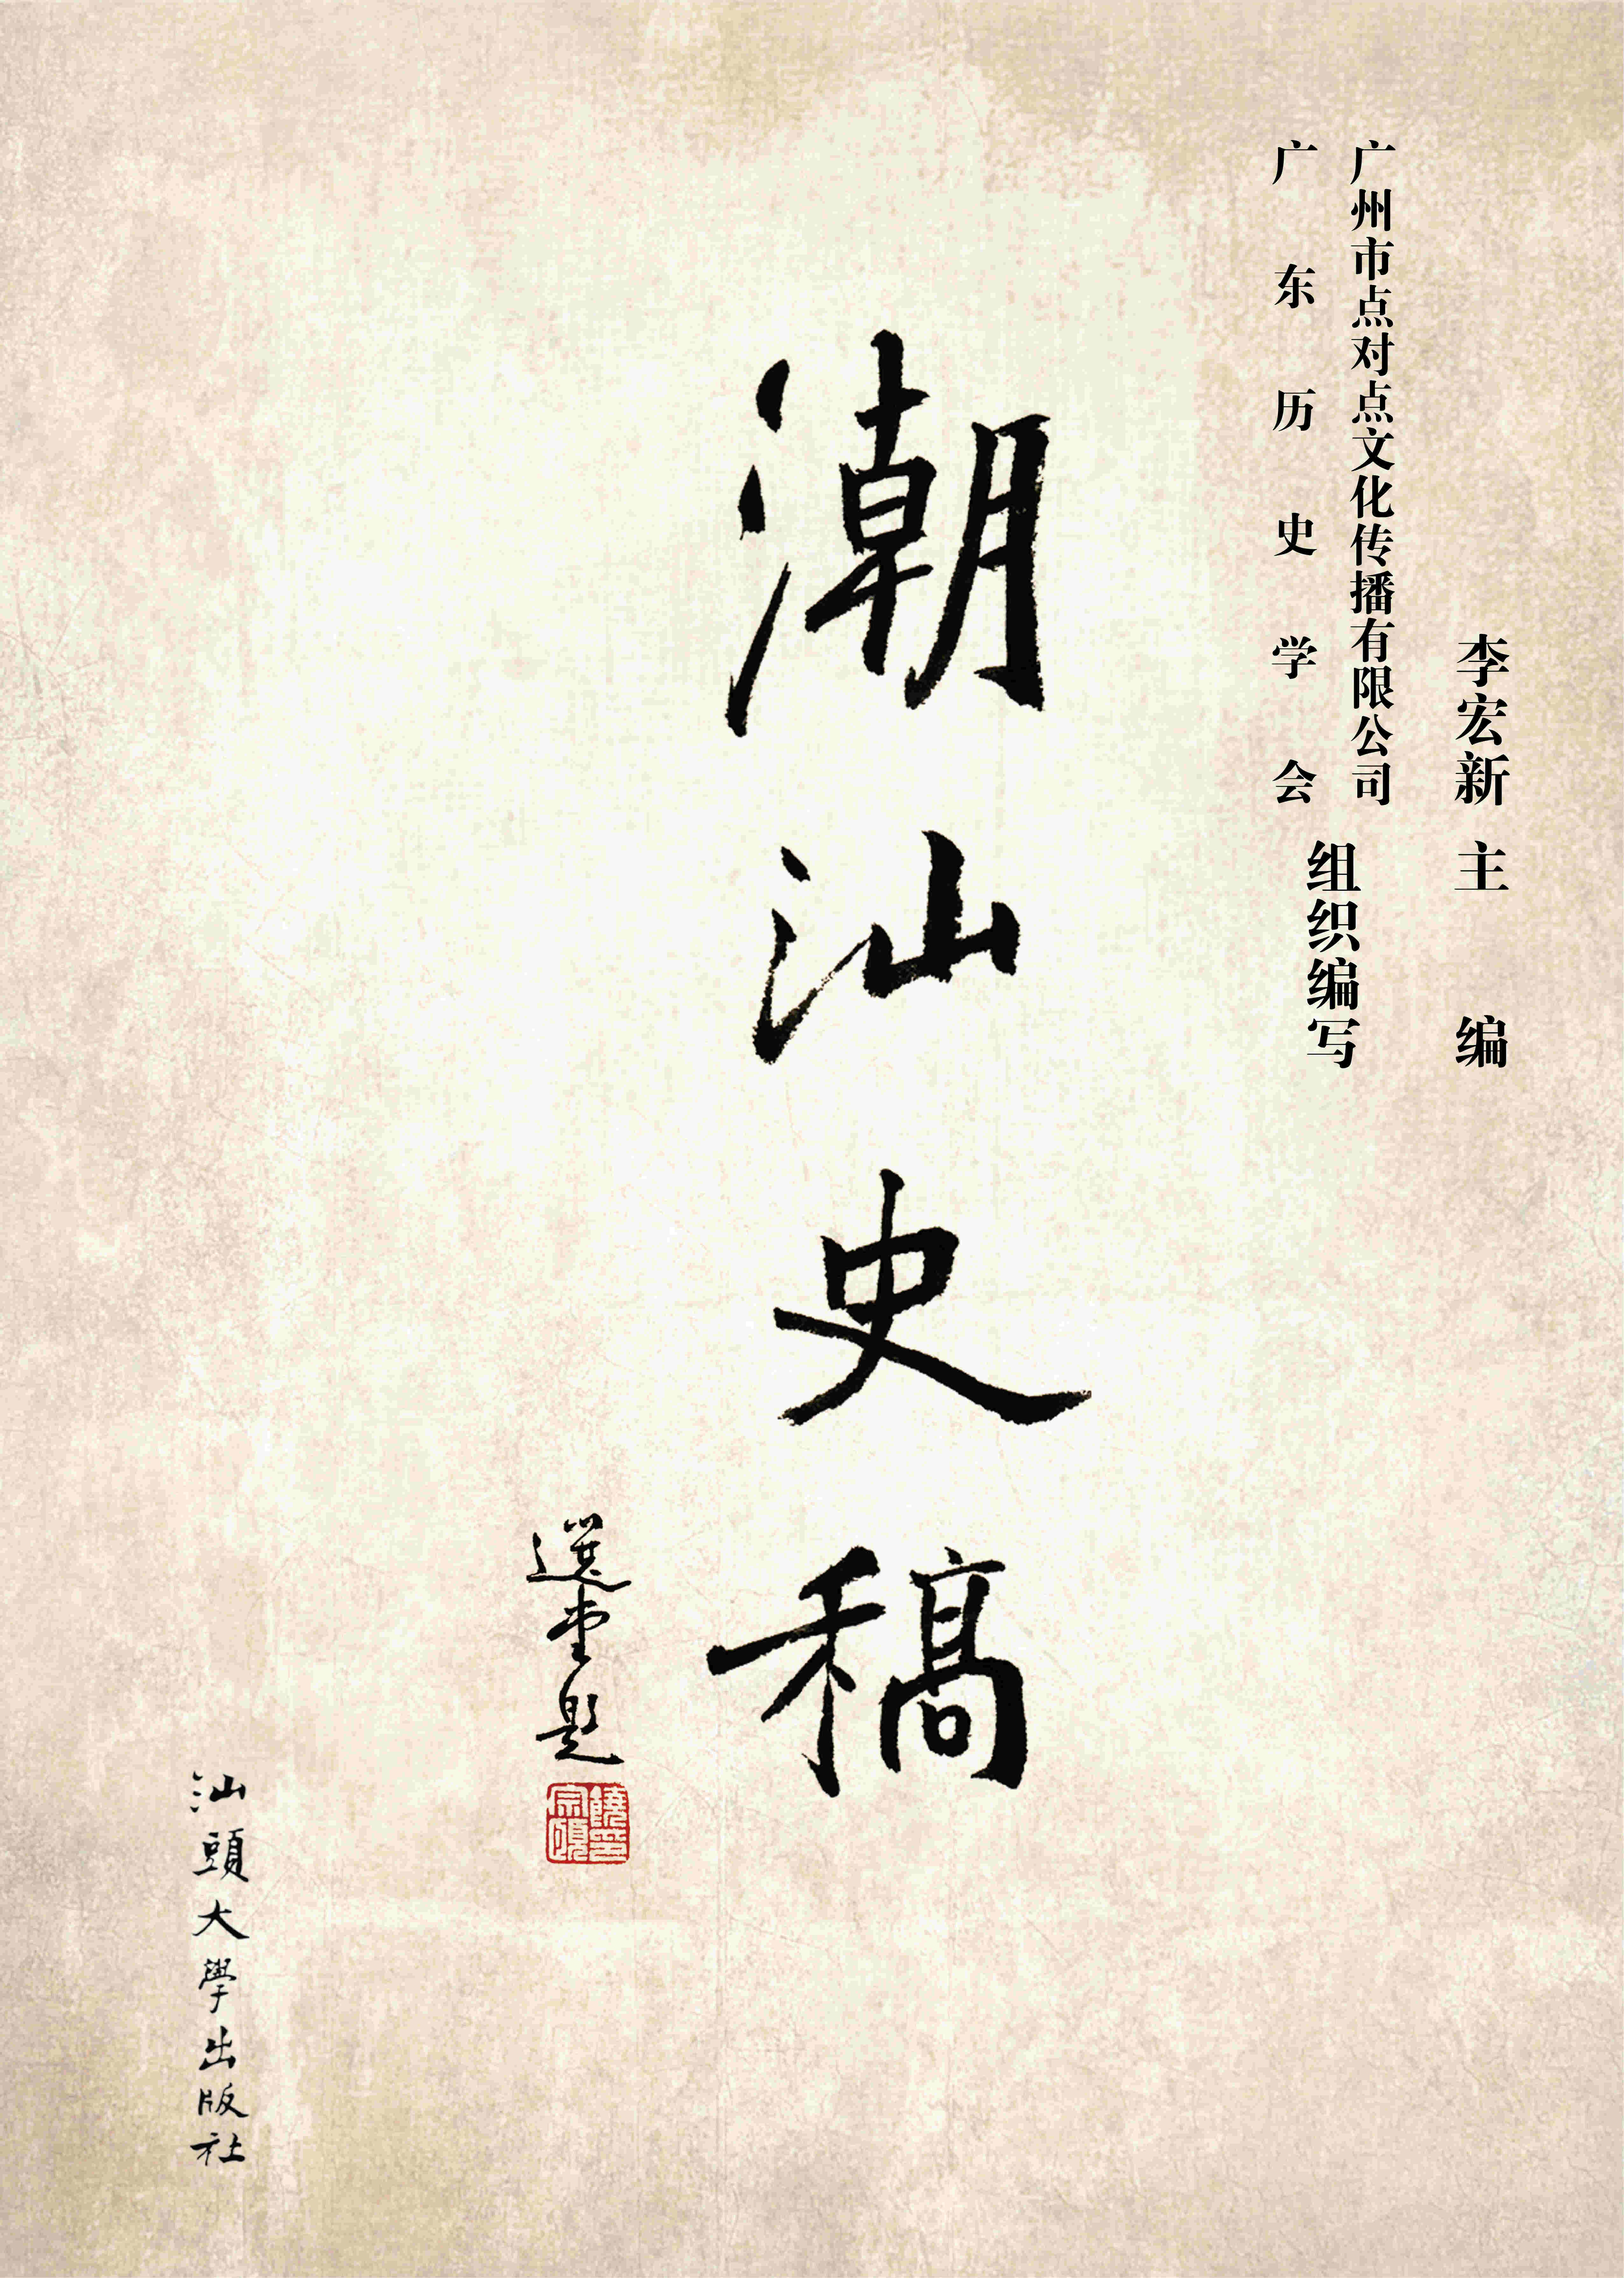 李宏新 主编
广州市点对点文化传播有限公司
广东历史学会
组织编写
潮汕史稿
選堂題
饒宗頤印
汕頭大學出版社